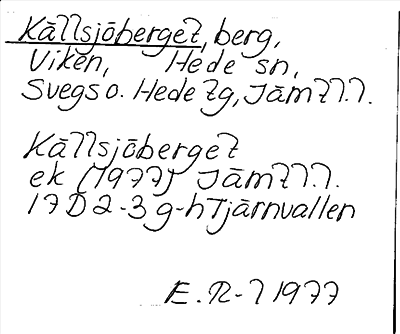 Källsjöberget, berg,
Viken, Hede sn,
Svegs o. Hede tg, Jämtl.l.
Källsjöberget
ek (1977) Jämtl.l.
17D 2-3 g-h Tjärnvallen
E.R-l 1977